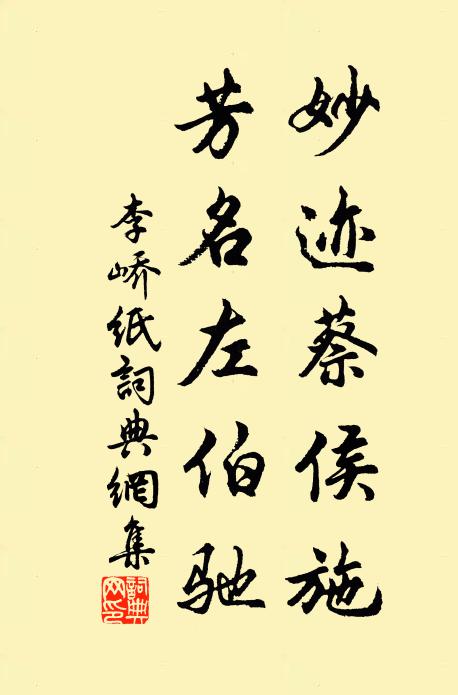 妙迹蔡侯施
芳名左伯驰
李峤纸詞典網集
詞典网印